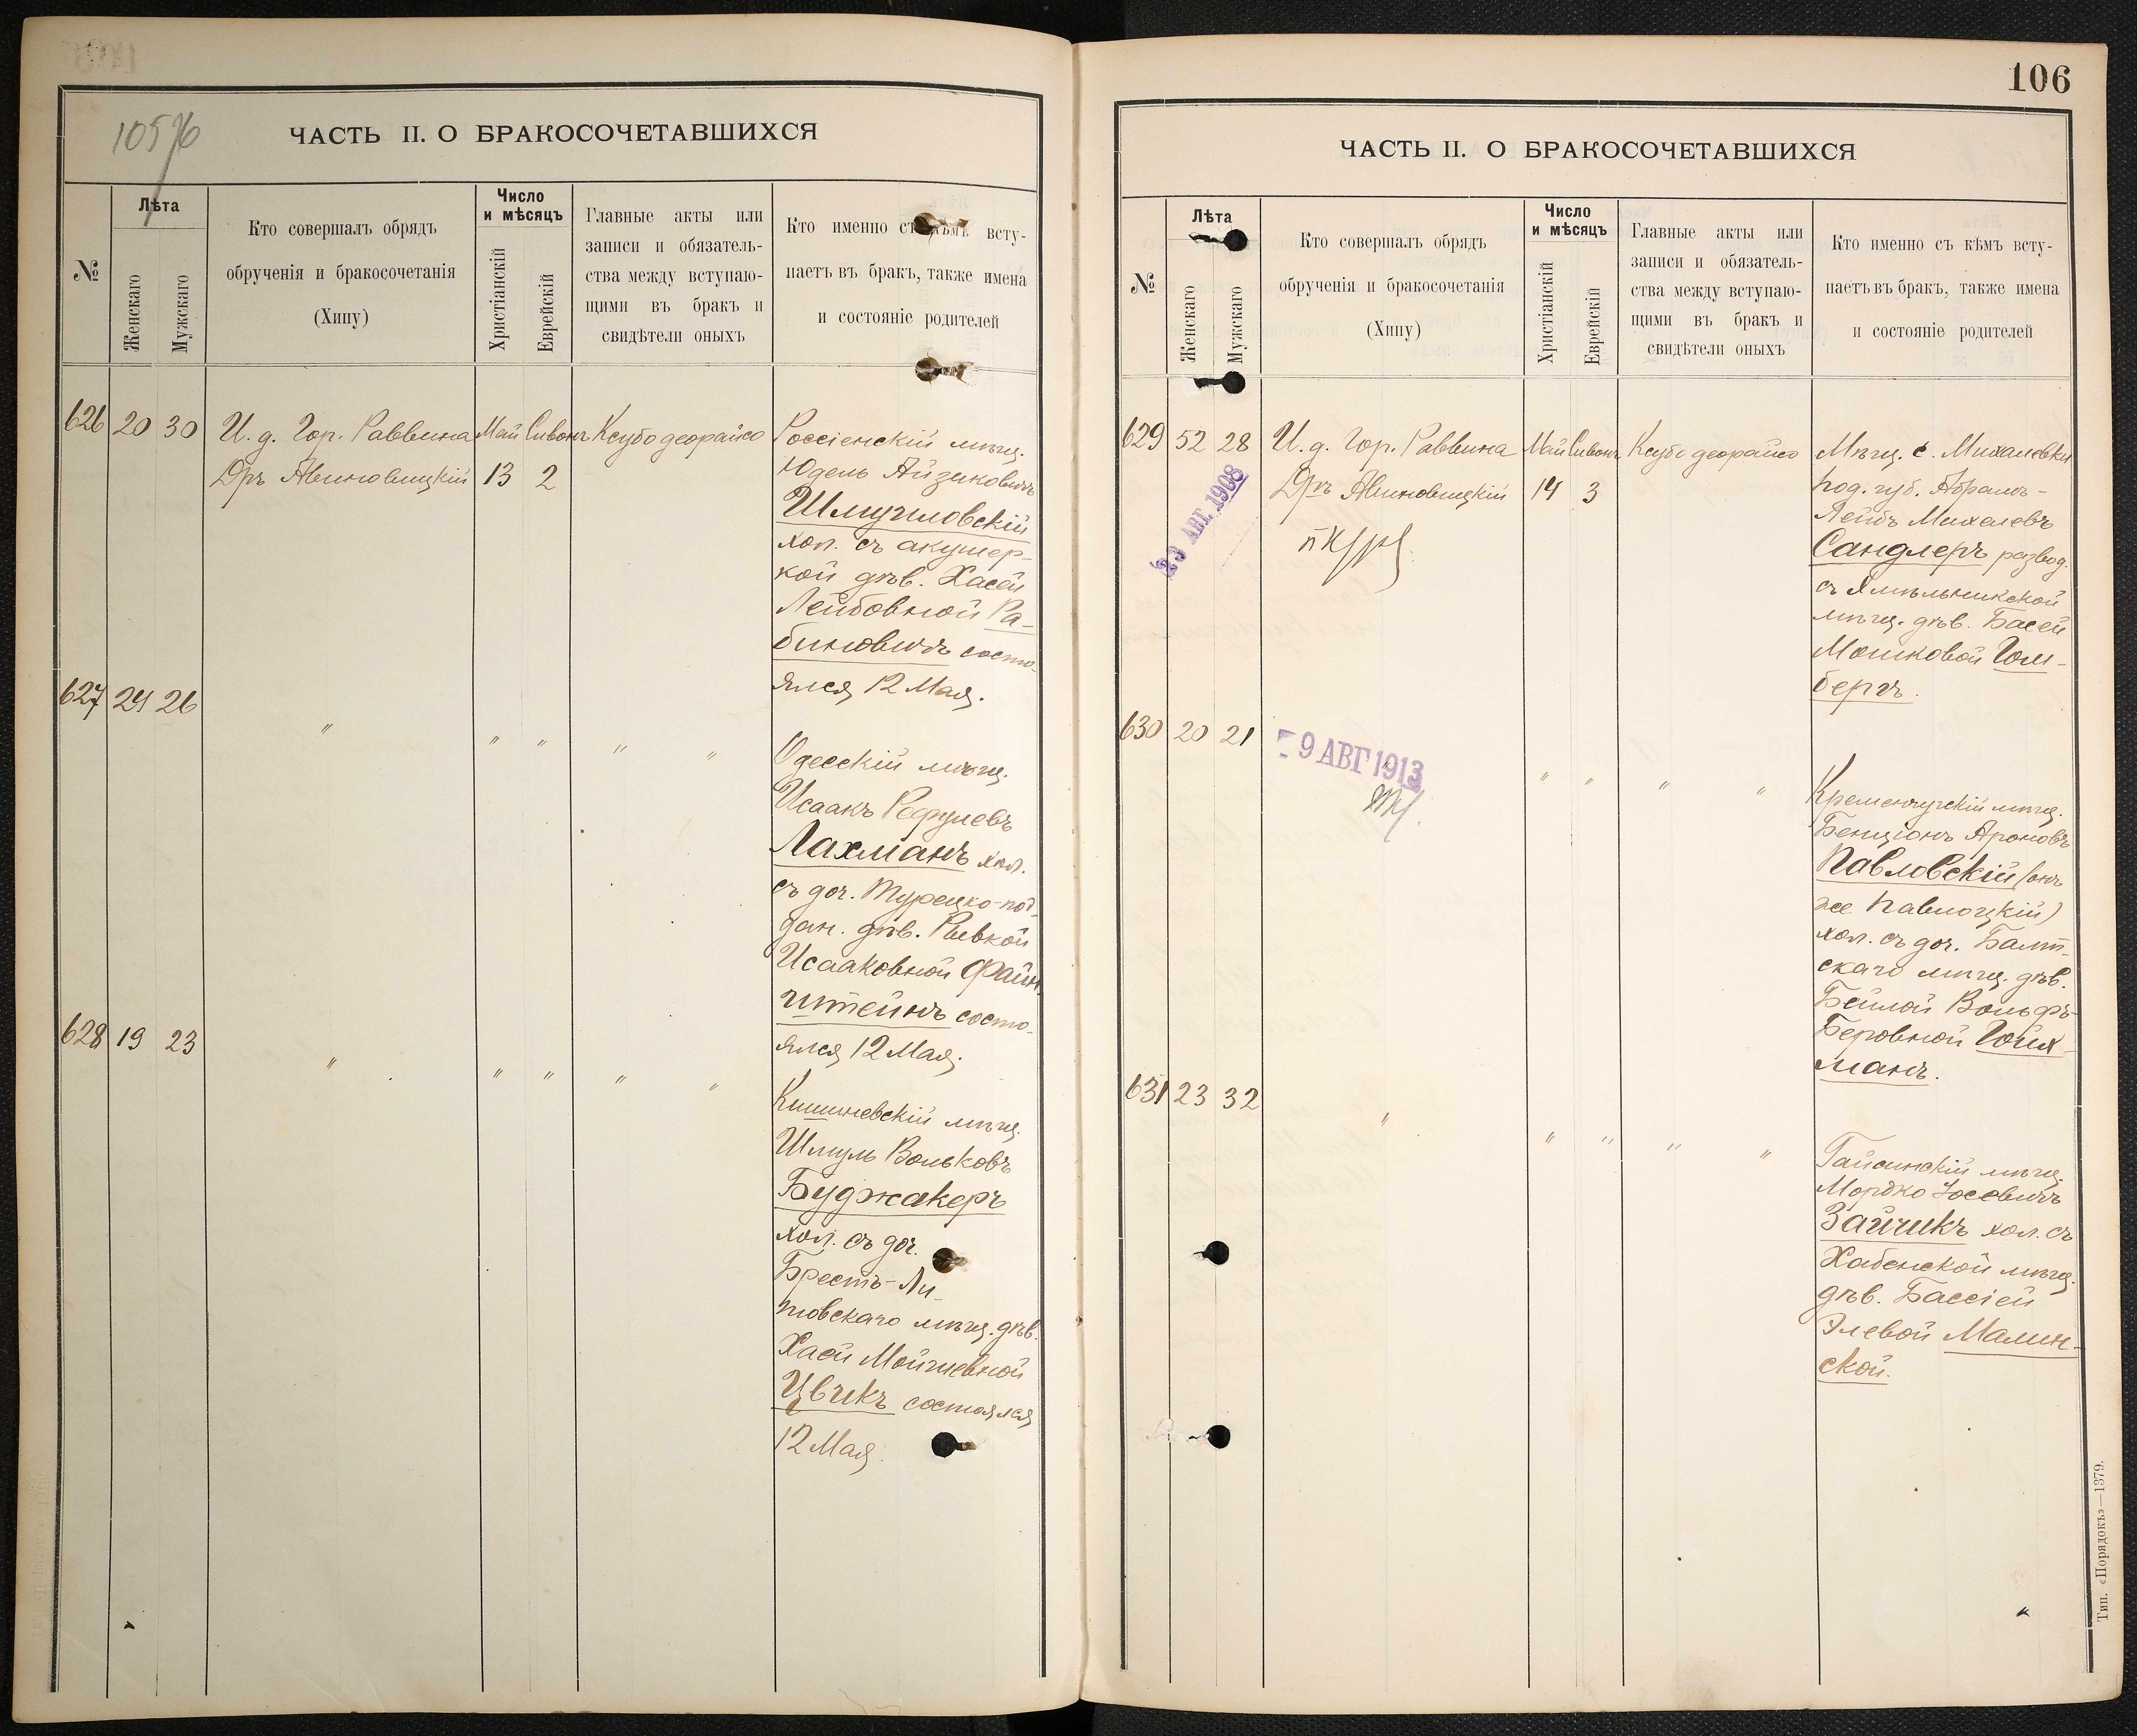 10576
ЧАСТЬ II. О БРАКОСОЧЕТАВШИХСЯ
№
Лѣта
Женскаго
Мужскаго
Кто совершалъ обрядъ
обрученія и бракосочетанія
(Хипу)
Число
и мѣсяцъ
Христіанскій
Еврейскій
Главные акты или
записи и обязатель-
ства между вступаю-
щими въ бракъ и
свидѣтели оныхъ
Кто именно съ кѣмъ всту-
паетъ въ бракъ, также имена
и состояніе родителей
626 20 30 И. д. Гор. Раввина Май Сивонъ Ксубо деорайсо Россіенскій мѣщ.
Дръ Авиновицкій 13 2 Юдель Айзиковичъ
Шмуиловскій
хол. съ акушер-
кой дѣв. Хасей
Лейбовной Ра-
биновичъ состо-
ялся 12 Мая.
627 24 26
" " " " " Одесскій мѣщ.
Исаакъ Рефулевъ
Лахманъ хол.
съ доч. Турецко-под-
дан. дѣв. Ривкой
Исааковной Файн-
штейнъ состо-
ялся 12 Мая.
628 19 23
" " " " " Кишиневскій мѣщ.
Шмуль Вольковъ
Буджакеръ
хол. съ доч.
Брестъ-Ли-
товскаго мѣщ. дѣв.
Хаей Мойшевной
Цвикъ состоялся
12 Мая.
106
ЧАСТЬ II. О БРАКОСОЧЕТАВШИХСЯ
№
Лѣта
Женскаго
Мужскаго
Кто совершалъ обрядъ
обрученія и бракосочетанія
(Хипу)
Число
и мѣсяцъ
Христіанскій
Еврейскій
Главные акты или
записи и обязатель-
ства между вступаю-
щими въ бракъ и
свидѣтели оныхъ
Кто именно съ кѣмъ всту-
паетъ въ бракъ, также имена
и состояніе родителей
629 52 28 И. д. Гор. Раввина Май Сивонъ Ксубо деорайсо Мѣщ. с. Михалевки
Дръ Авиновицкій 14 3 Под. губ. Абрамъ-
Лейбъ Михелевъ
23 АВГ. 1908
Сандлеръ развод.
съ Хмѣльникской
мѣщ. дѣв. Басей
Мошковой Гол-
бергъ.
630 20 21
9 АВГ 1913
" " " " Кременчугскій мѣщ.
Бенціонъ Ароновъ
Павловскій (онъ
же Павлоцкій)
хол. съ доч. Балт-
скаго мѣщ. дѣв.
Бейлой Вольфъ-
Беровной Гойх-
манъ.
631 23 32
" " " " " Гайсинскій мѣщ.
Мордко Іосевичъ
Зайчикъ хол. съ
Хабенской мѣщ.
дѣв. Бассіей
Элевой Малин-
ской.
Тип. «Порядокъ»—1379.